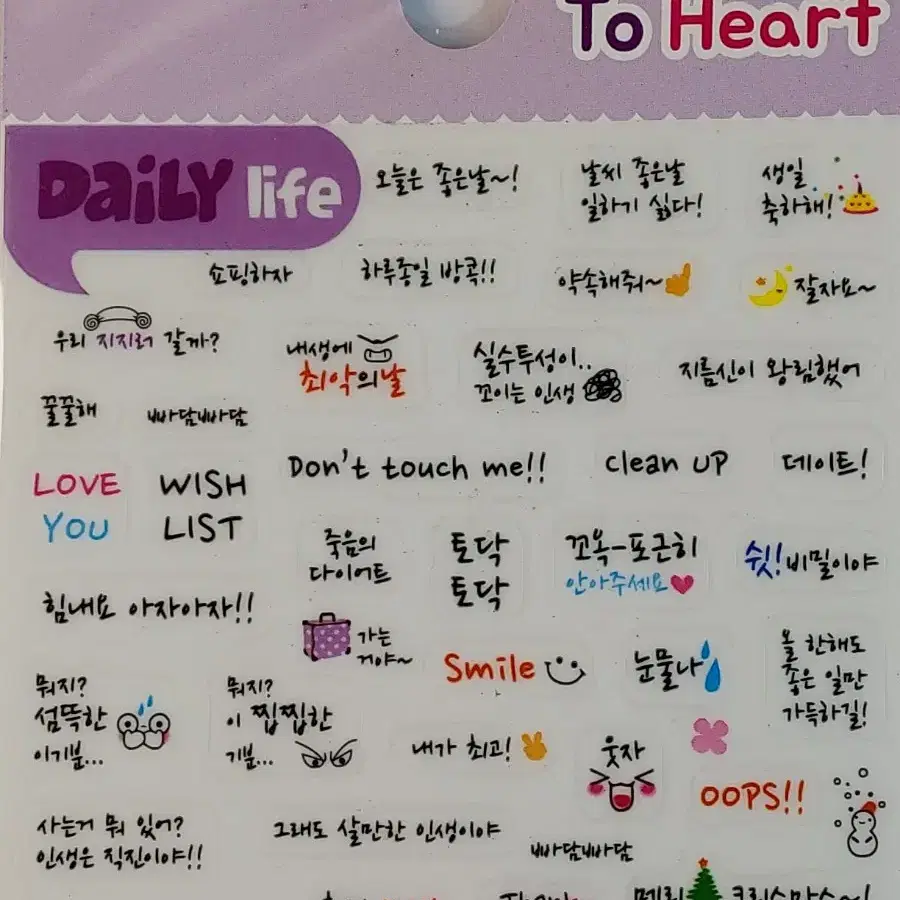 To Heart
DaiLY life
오늘은 좋은날~!
날씨 좋은날
일하기 싫다!
생일
축하해!
쇼핑하자
하루종일 방콕!!
약속해줘~
잘자요~
우리 지지러 갈까?
내생에
최악의날
실수투성이..
꼬이는 인생
지름신이 왕림했어
꿀꿀해
빠담빠담
LOVE
YOU
WISH
LIST
Don't touch me!!
clean UP
데이트!
죽음의
다이어트
토닥
토닥
꼬옥-포근히
안아주세요
쉿!비밀이야
힘내요 아자아자!!
가는
거야~
Smile
눈물나
올 한해도
좋은 일만
가득하길!
뭐지?
섬뜩한
이기분...
뭐지?
이 찝찝한
기분...
내가 최고!
웃자
OOPS!!
사는거 뭐 있어?
인생은 직진이야!!
그래도 살만한 인생이야
빠담빠담
메리 크리스마스~!